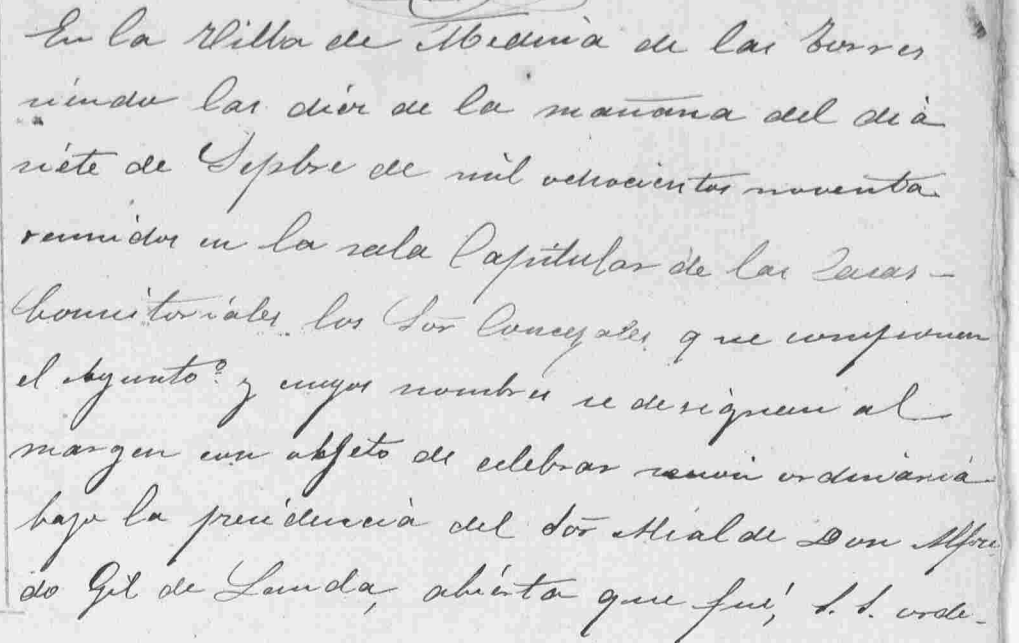 En la Villa de Medina de las Torres
siendo las diez de la mañana del dia
siete de Sepbre de mil ochocientos noventa
reunidos en la sala Capitular de las Casas-
Consistoriales los Sor̃ Concejales que componen
el Ayuntoº y cuyos nombres se designan al
margen con objeto de celebrar sesion ordinaria
bajo la presidencia del Sor̃ Alcalde Don Alfre
do Gil de Landa, abierta que fué, S. S. orde-